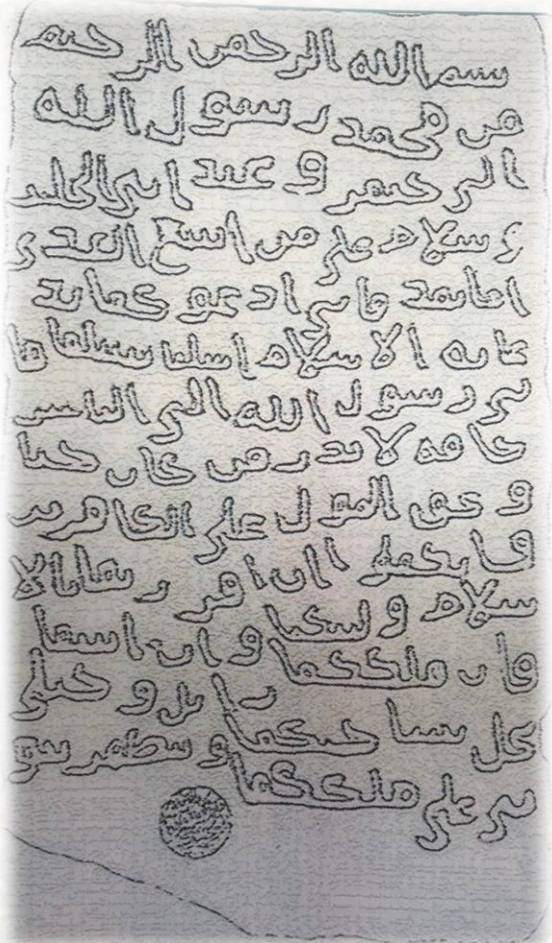 بسم الله الرحمن الرحيم
من محمد رسول الله
الى جيفر و عبد ابني الجلند
ى سلام على من اتبع الهدى
اما بعد فاني ادعوكما بد
عاية الاسلام اسلما تسلما فا
ني رسول الله الى الناس
كافة لانذر من كان حيا
و يحق القول على الكافرين
فانكما ان اقررتما بالا
سلام و ليتكما و ان ابيتما
فان ملككما زايل و خيلي
تحل بساحتكما و تظهر نبو
تي على ملككما